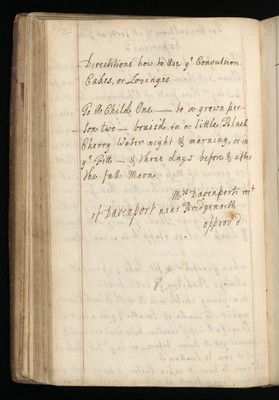 Directtions how to Use yᵉ Convultion
Cakes, or Lozinges
To A Child One — to a grown per-
son two — bruisd in a little Black
Cherry Water night & morning, or in
yᵉ Fitt — & three days before & after
the full Moon
Mʳˢ Davenports rect
of Davenport near Bridgenorth
approv'd